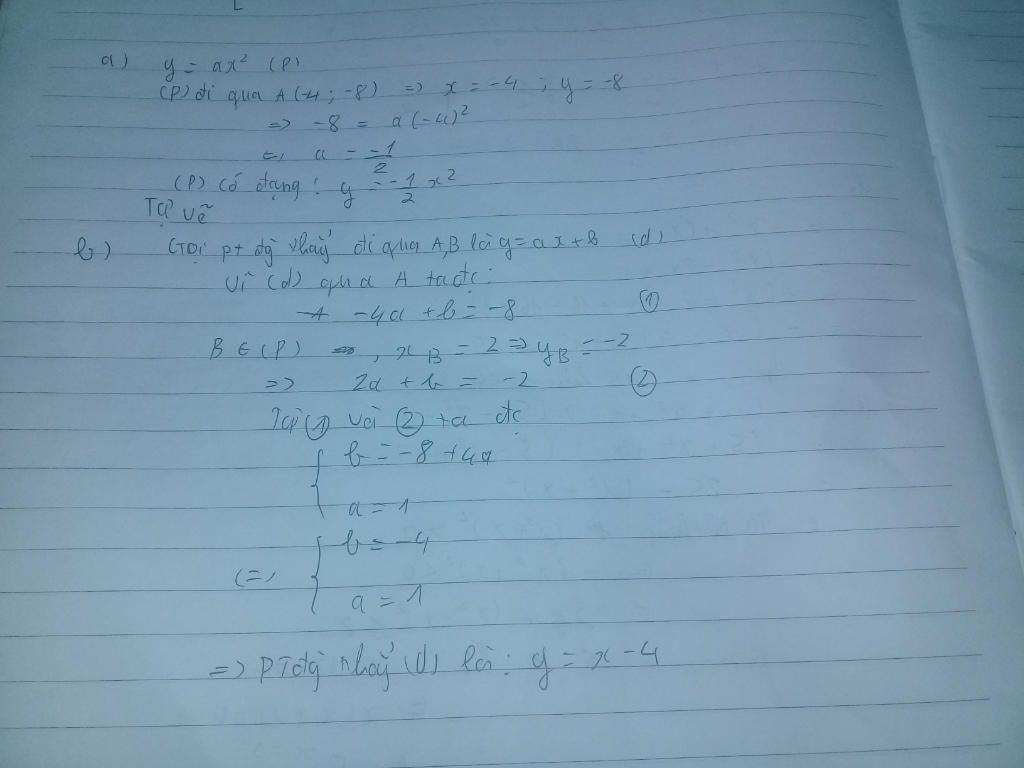 a) y = ax² (P)
(P) đi qua A(-4; -8) => x = -4 ; y = -8
=> -8 = a(-4)²
<=> a = -1/2
(P) có dạng: y = -1/2 x²
Tự vẽ
b) Gọi pt đg thẳng đi qua A,B là y = ax + b (d)
Vì (d) qua A ta đc:
-4a + b = -8 ①
B ∈ (P) , x_B = 2 => y_B = -2
=> 2a + b = -2 ②
Từ ① và ② ta đc
{ b = -8 + 4a
a = 1
<=> { b = -4
a = 1
=> PT đg thẳng (d) là: y = x - 4